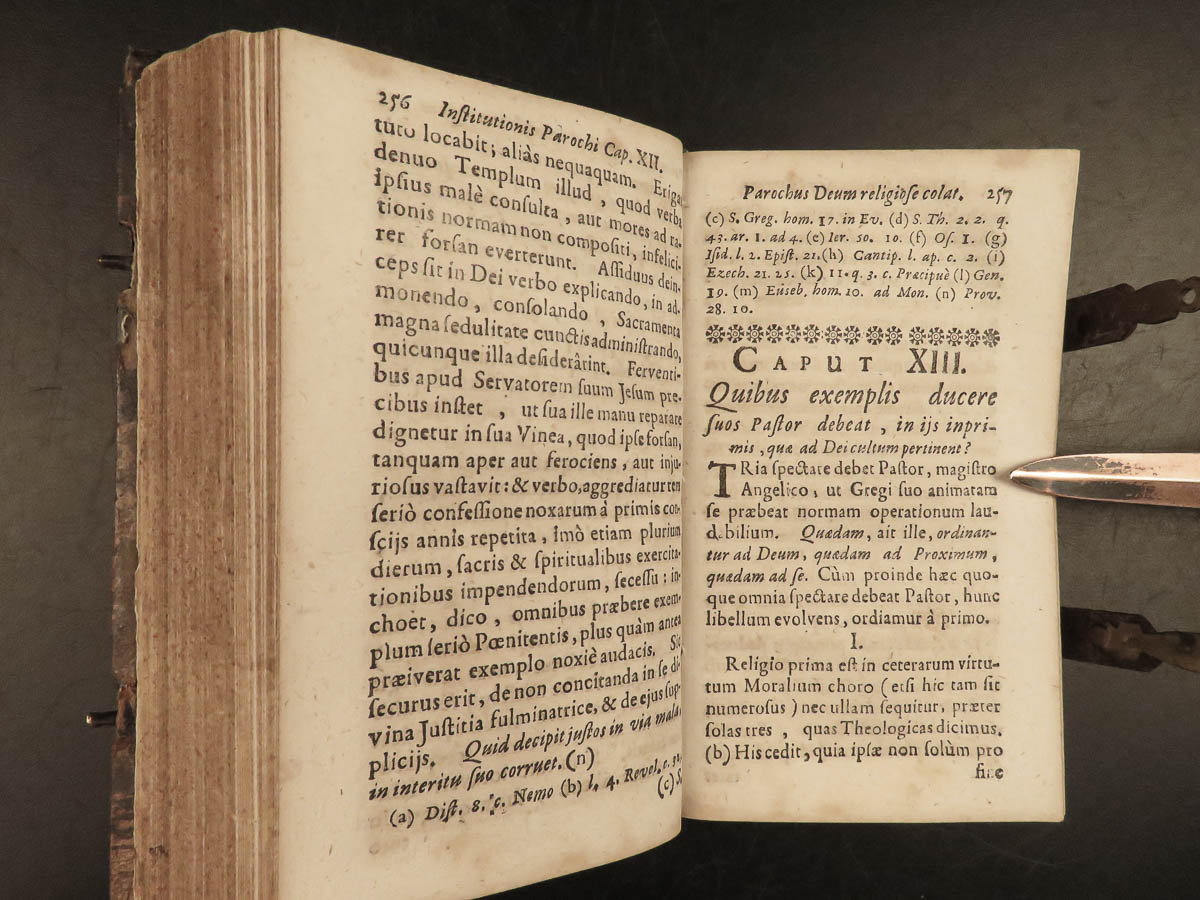 256 Inſtitutionis Parochi Cap. XII.
tuto locabit; aliàs nequaquam. Eriga
denuo Templum illud, quod verba
ipſius malè conſulta, aut mores ad ra-
tionis normam non compoſiti, infelici-
ter forſan everterunt. Aſſiduus dein-
ceps ſit in Dei verbo explicando, in ad-
monendo, conſolando, Sacramenta
magna ſedulitate cunctis adminiſtrando,
quicunque illa deſiderârint. Ferventi-
bus apud Servatorem ſuum Jeſum pre-
cibus inſtet, ut ſua ille manu reparare
dignetur in ſua Vinea, quod ipſe forſan,
tanquam aper aut ferociens, aut inju-
rioſus vaſtavit: & verbo, aggrediatur ten
ſeriò confeſſione noxarum à primis con-
ſcijs annis repetita, imò etiam plurium
dierum, ſacris & ſpiritualibus exercita-
tionibus impendendorum, ſeceſſu: in-
choët, dico, omnibus præbere exem-
plum ſeriò Pœnitentis, plus quàm antea
præiverat exemplo noxiè audacis. Sic
ſecurus erit, de non concitanda in ſe di-
vina Juſtitia fulminatrice, & de ejus ſup-
plicijs. Quid decipit juſtos in via mala,
in interitu ſuo corruet. (n)
(a) Diſt. 8. c. Nemo (b) l. 4. Revel. c.
(c) S.
Parochus Deum religioſe colat. 257
(c) S. Greg. hom. 17. in Ev. (d) S. Th. 2. 2. q.
43. ar. 1. ad 4. (e) Ier. 50. 10. (f) Oſ. 1. (g)
Iſid. l. 2. Epiſt. 21. (h) Cantip. l. ap. c. 2. (i)
Ezech. 21. 25. (k) 11. q. 3. c. Præcipuè (l) Gen.
19. (m) Euſeb. hom. 10. ad Mon. (n) Prov.
28. 10.
CAPUT XIII.
Quibus exemplis ducere
ſuos Paſtor debeat, in ijs inpri-
mis, quæ ad Dei cultum pertinent?
TRia ſpectare debet Paſtor, magiſtro
Angelico, ut Gregi ſuo animatam
ſe præbeat normam operationum lau-
dabilium. Quædam, ait ille, ordinan-
tur ad Deum, quædam ad Proximum,
quædam ad ſe. Cùm proinde hæc quo-
que omnia ſpectare debeat Paſtor, hunc
libellum evolvens, ordiamur à primo.
I.
Religio prima eſt in ceterarum virtu-
tum Moralium choro (etſi hic tam ſit
numeroſus) nec ullam ſequitur, præter
ſolas tres, quas Theologicas dicimus.
(b) His cedit, quia ipſæ non ſolùm pro
fine